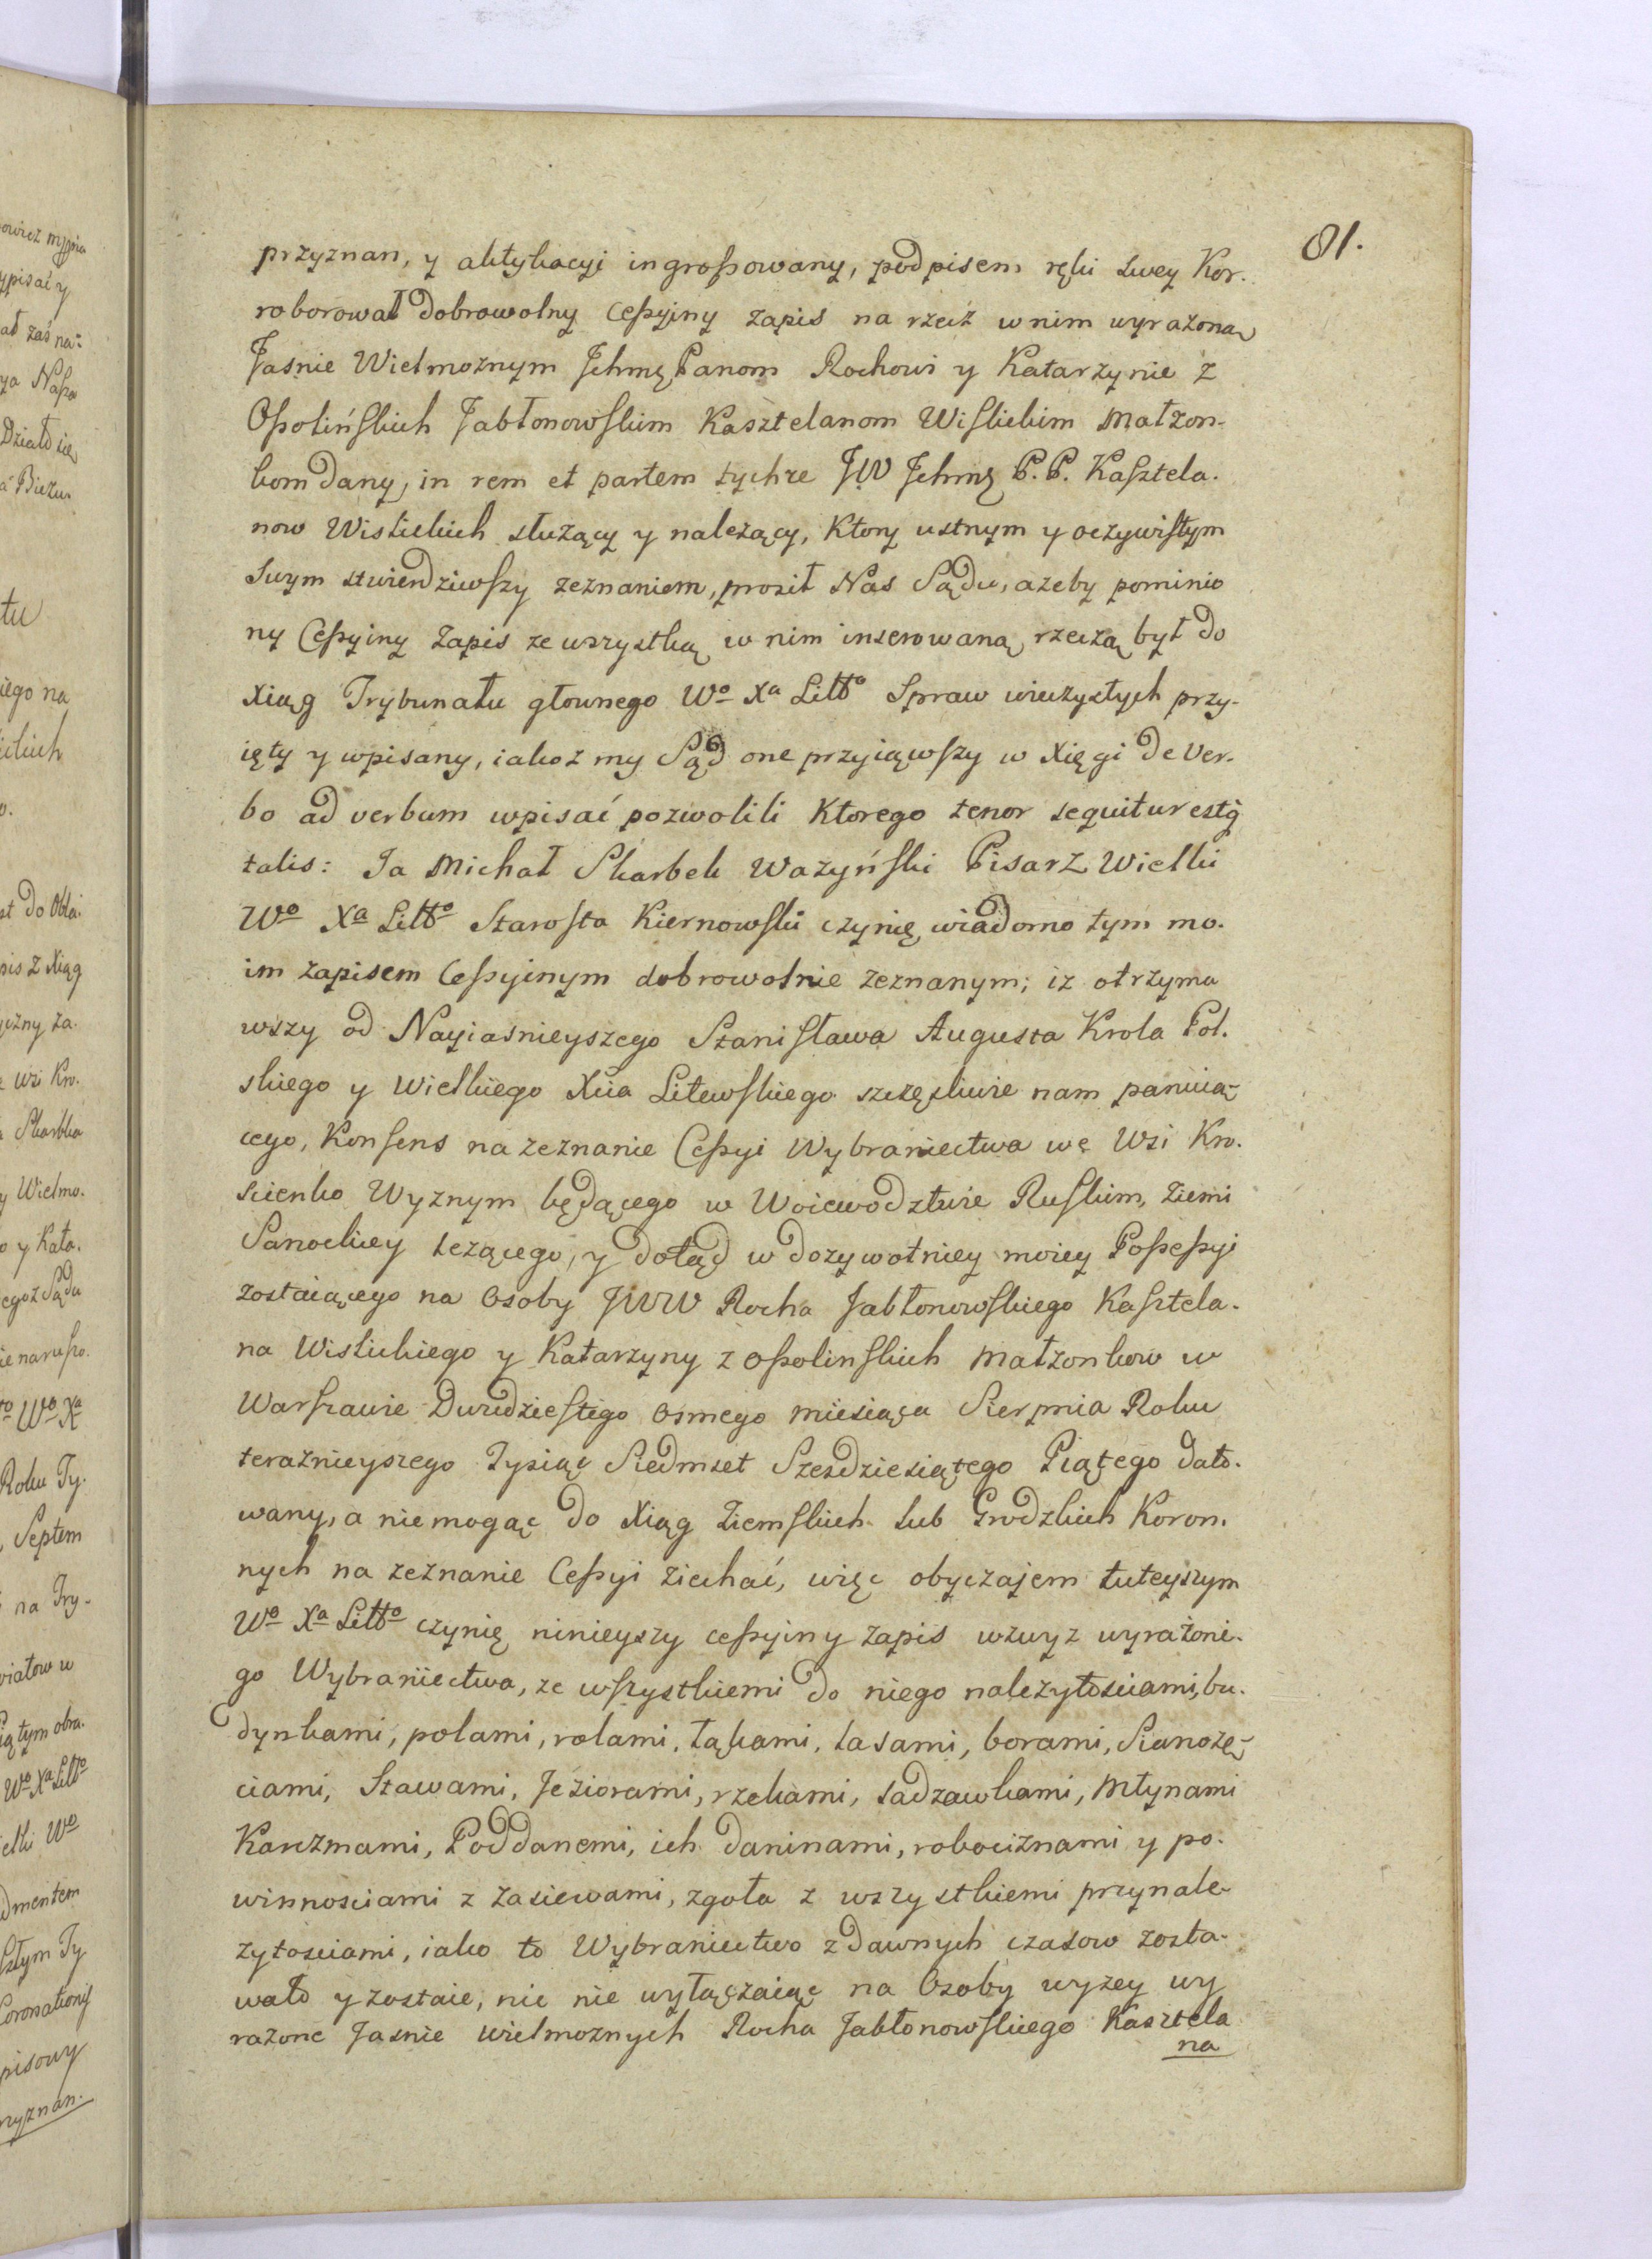 81.
przyznan, y aktykacyi ingroßowany, podpisem ręki swey Kor.
roborował dobrowolny Ceßyiny zapis na rzecz w nim wyrażoną
Jaśnie Wielmożnym Ichmę Panom Rochowi y Katarzynie z
Oßolińskich Jabłonowskim Kasztelanom Wislickim Małżon-
kom dany, in rem et partem tychże JW Ichmę P.P. Kasztela.
now Wislickich służący y należący, Ktory ustnym y oczywistym
Swym stwierdziwszy zeznaniem, prosił Nas Sądu, ażeby pominio
ny Ceßyiny Zapis ze wszystką w nim inserowaną rzeczą był do
Xiąg Trybunału głownego Wo Xa Litto Spraw wieczystych przy-
ięty y wpisany, iakoż my Sąd one przyiąwszy w Xięgi de Ver.
bo ad verbum wpisać pozwolili Ktorego tenor sequitur estq
talis: Ja Michał Skarbek Ważyński Pisarz Wielki
Wo Xa Litto Starosta Kiernowski czynię wiadomo tym mo.
im zapisem Ceßyinym dobrowolnie zeznanym; iż otrzyma
wszy od Nayiaśnieyszego Stanisława Augusta Krola Pol.
skiego y Wielkiego Xcia Litewskiego szczęśliwie nam panuią-
cego, Konsens na zeznanie Ceßyi Wybraniectwa wę Wsi Kro.
scienko Wyznym będącego w Woiewodztwie Ruskim, Ziemi
Sanockiey leżącego, y dotąd w dożywotniey moiey Poßeßyi
zostaiącego na Osoby JWW Rocha Jabłonowskiego Kasztela.
na Wislickiego y Katarzyny z Oßolinskich Małżonkow w
Warszawie Dwudziestego Osmego miesiąca Sierpnia Roku
teraźnieyszego Tysiąc Siedmset Szesdziesiątego Piątego dato.
wany, a niemogąc do Xiąg Ziemskich lub Grodzkich Koron.
nych na zeznanie Ceßyi ziechać, więc obyczajem tuteyszym
Wo Xa Litto czynię ninieyszy ceßyiny zapis wzwyż wyrażone.
go Wybraniectwa, ze wszystkiemi do niego należytościami, bu.
dynkami, polami, rolami, łąkami, lasami, borami, Sianożę-
ciami, Stawami, Jeziorami, rzekami, sadzawkami, Młynami
Karczmami, Poddanemi, ich daninami, robociznami y po.
winnościami z zasiewami, zgoła z wszystkiemi przynale-
żytościami, iako to Wybraniectwo z dawnych czasow zosta-
wało y zostaie, nic nie wyłączaiąc na Osoby wyżey wy
rażone Jasnie wielmożnych Rocha Jabłonowskiego Kasztela
na